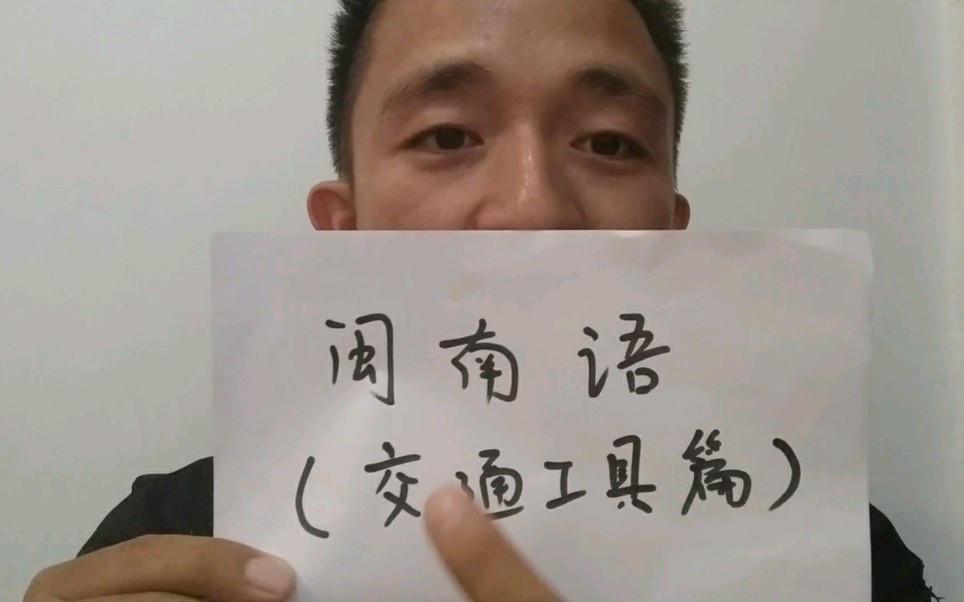 闽南语
(交通工具篇)